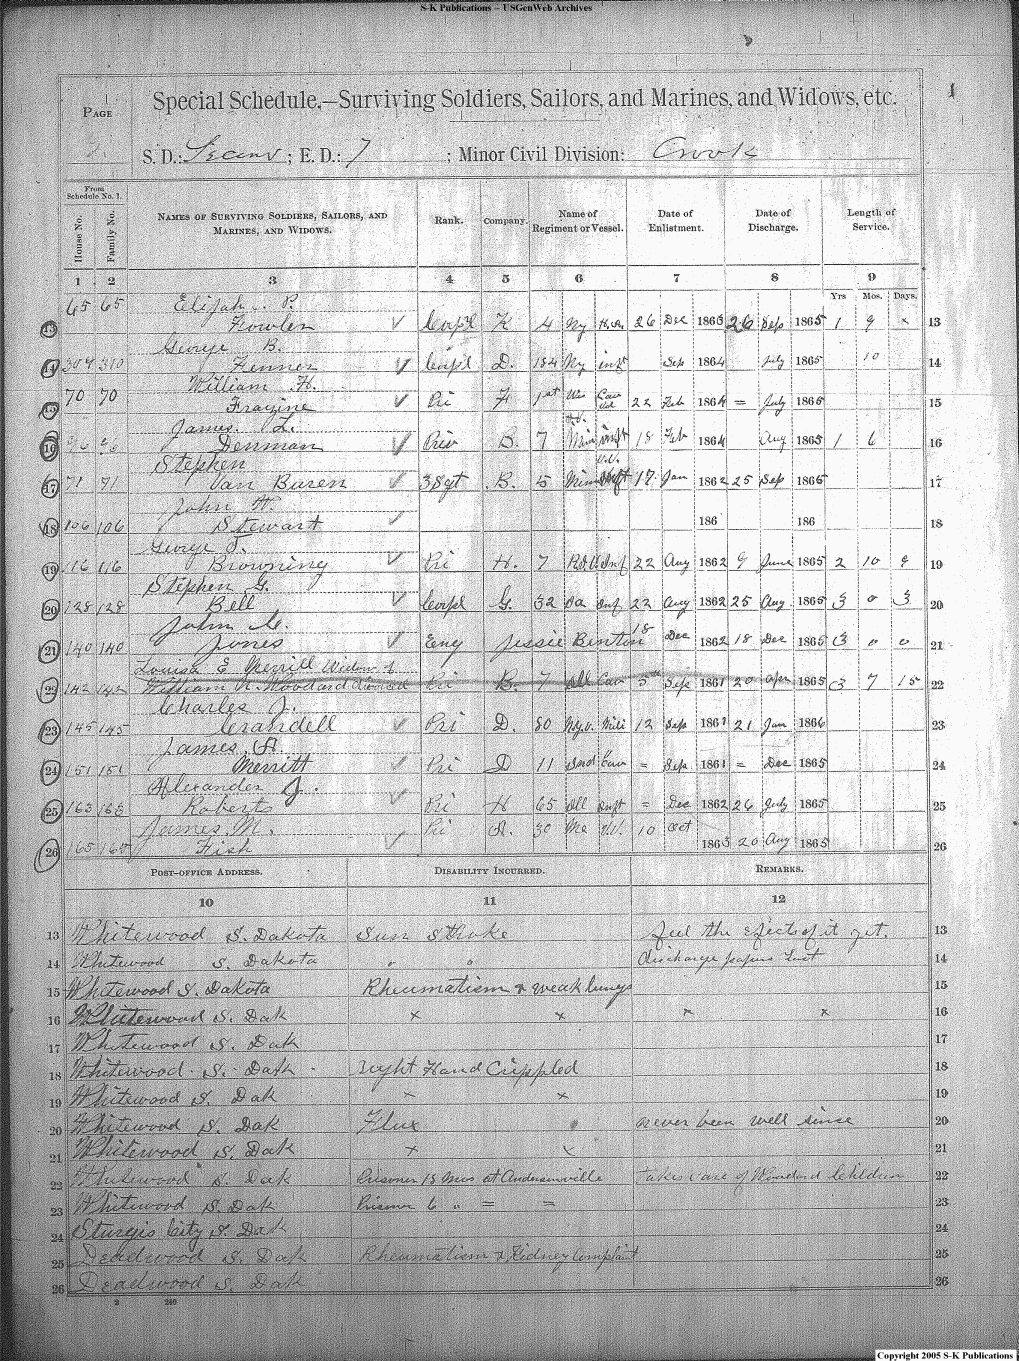 S-K Publications – USGenWeb Archives
1
Special Schedule.—Surviving Soldiers, Sailors, and Marines, and Widows, etc.
PAGE
2. S. D.: Second; E. D.: 7; Minor Civil Division: Crook
From Schedule No. 1.
House No. Family No. NAMES OF SURVIVING SOLDIERS, SAILORS, AND MARINES, AND WIDOWS. Rank. Company. Name of Regiment or Vessel. Date of Enlistment. Date of Discharge. Length of Service.
1 2 3 4 5 6 7 8 9
Yrs Mos. Days.
65 65 Elijah P.
13 Fowler Corpl K 4 Ny 26 Dec 1863 26 Sep 1865 1 9 13
George B.
14 304 310 Fenner Corpl D. 184 Ny inft Sep 1864 July 1865 10 14
William H.
15 70 70 Frazine Pri F 1st Wis Cav 22 Feb 1864 = July 1865 15
James L.
16 96 96 Denman Priv B. 7 inft 18 Feb 1864 Aug 1865 1 6 16
Stephen
17 71 71 Van Buren 3 Sgt B. 5 Min 17 Jan 1862 25 Sep 1865 17
John H.
18 106 106 Stewart 186 186 18
George T.
19 116 116 Browning Pri H. 7 Inf 22 Aug 1862 9 June 1865 2 10 9 19
Stephen G.
20 128 128 Bell Corpl G. 32 Ia Inf 22 Aug 1862 25 Aug 1865 3 0 3 20
John C.
21 140 140 Jones Eng Jessie Benton 18 Dec 1862 18 Dec 1865 3 0 0 21
Louisa E Merrill Widow of
22 142 142 William R. Woodard divorced Pri B. 7 Ill Cav 5th Sep 1861 20 Apr 1865 3 7 15 22
Charles J.
23 145 145 Crandell Pri D. 80 N.y.v. Mili 12 Sep 1861 21 Jan 1866 23
James A.
24 151 151 Merritt Pri D 11 Ind Cav = Sep 1861 = Dec 1865 24
Alexander J.
25 163 163 Roberts Pri H 65 Ill Inft = Dec 1862 26 July 1865 25
James M.
26 165 165 Fish Pri A. 30 Me 10 Oct 1863 20 Aug 1865 26
POST-OFFICE ADDRESS. DISABILITY INCURRED. REMARKS.
10 11 12
13 Whitewood S. Dakota Sun Stroke feel the efects of it yet. 13
14 Whitewood S. Dakota " " discharge papers Lost 14
15 Whitewood S. Dakota Rheumatism & weak lungs 15
16 Whitewood S. Dak × × × × 16
17 Whitewood S. Dak 17
18 Whitewood S. Dak right Hand Crippled 18
19 Whitewood S. Dak × × 19
20 Whitewood S. Dak Flux never been well since 20
21 Whitewood S. Dak × × 21
22 Whitewood S. Dak Prisoner 15 Mos at Andersonville takes care of Woodard Children 22
23 Whitewood S. Dak Prisoner 6 " = = 23
24 Sturgis City S. Dak 24
25 Deadwood S. Dak Rheumatism & Kidney Complaint 25
26 Deadwood S. Dak 26
2 246
Copyright 2005 S-K Publications